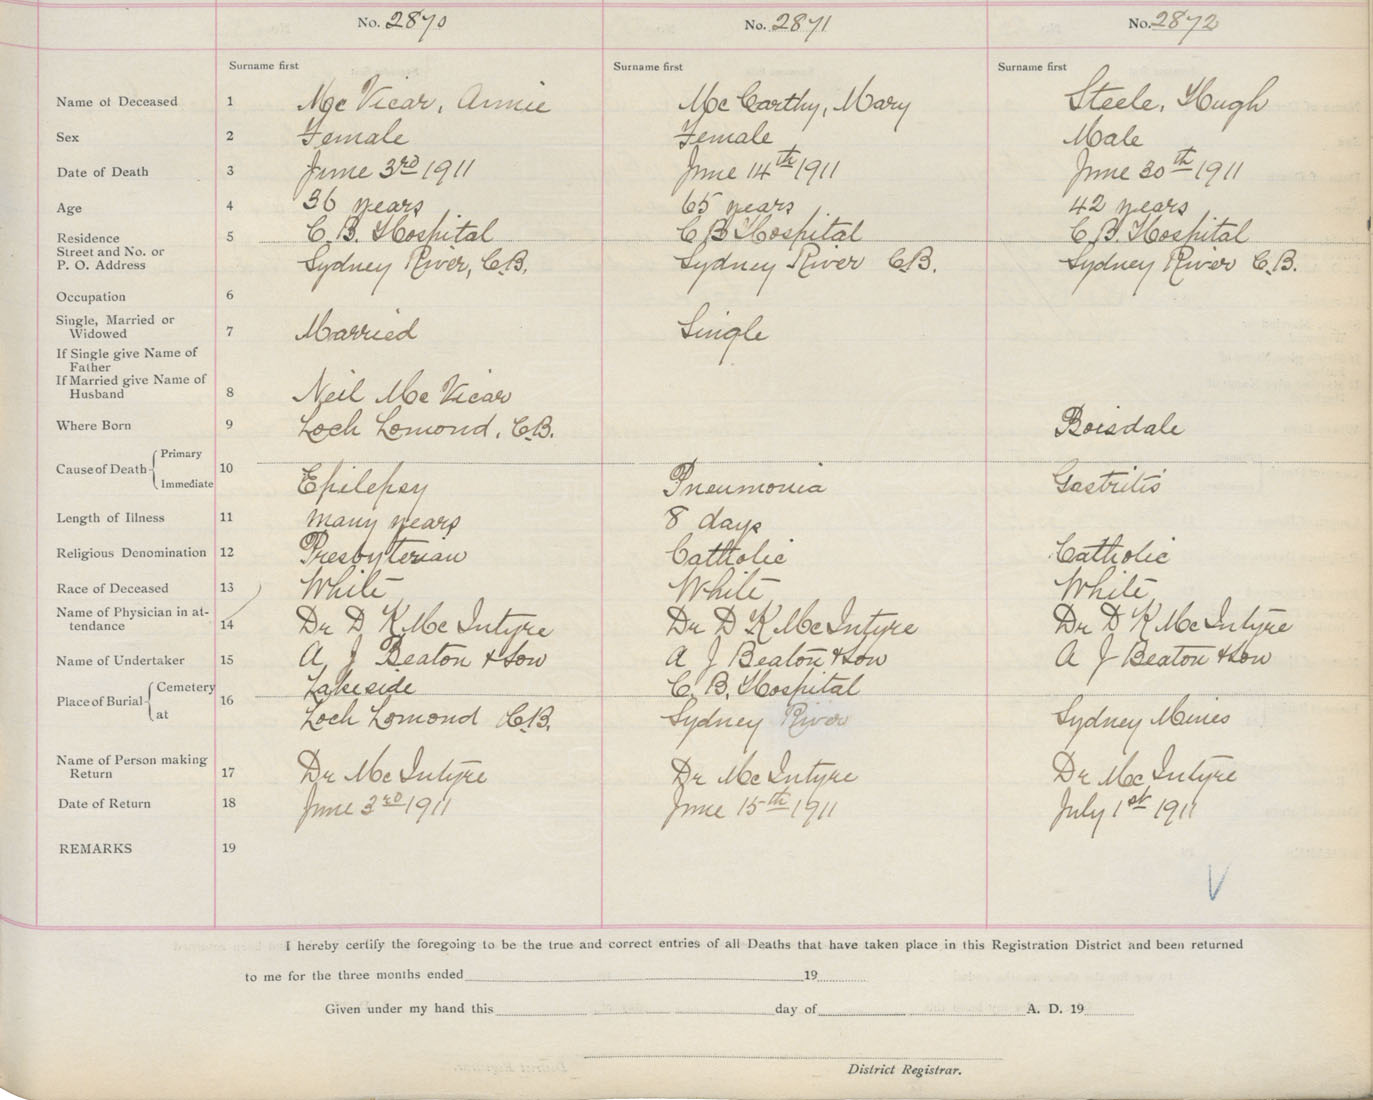 No. 2870 No. 2871 No. 2872
Surname first Surname first Surname first
Name of Deceased 1 Mc Vicar, Annie Mc Carthy, Mary Steele, Hugh
Sex 2 Female Female Male
Date of Death 3 June 3rd 1911 June 14th 1911 June 30th 1911
Age 4 36 years 65 years 42 years
Residence 5 C. B. Hospital C B Hospital C. B. Hospital
Street and No. or
P. O. Address Sydney River, C.B. Sydney River C.B. Sydney River C.B.
Occupation 6
Single, Married or
Widowed 7 Married Single
If Single give Name of
Father
If Married give Name of
Husband 8 Neil Mc Vicar
Where Born 9 Loch Lomond, C.B. Boisdale
Cause of Death Primary 10
Immediate Epilepsy Pneumonia Gastritis
Length of Illness 11 many years 8 days
Religious Denomination 12 Presbyterian Catholic Catholic
Race of Deceased 13 White White White
Name of Physician in at-
tendance 14 Dr D K Mc Intyre Dr D K Mc Intyre Dr D K Mc Intyre
Name of Undertaker 15 A J Beaton & Son A J Beaton & Son A J Beaton & Son
Place of Burial Cemetery 16 Lakeside C. B. Hospital
at Loch Lomond C.B. Sydney River Sydney Mines
Name of Person making
Return 17 Dr Mc Intyre Dr Mc Intyre Dr Mc Intyre
Date of Return 18 June 3rd 1911 June 15th 1911 July 1st 1911
REMARKS 19
I hereby certify the foregoing to be the true and correct entries of all Deaths that have taken place in this Registration District and been returned
to me for the three months ended 19
Given under my hand this day of A. D. 19
District Registrar.